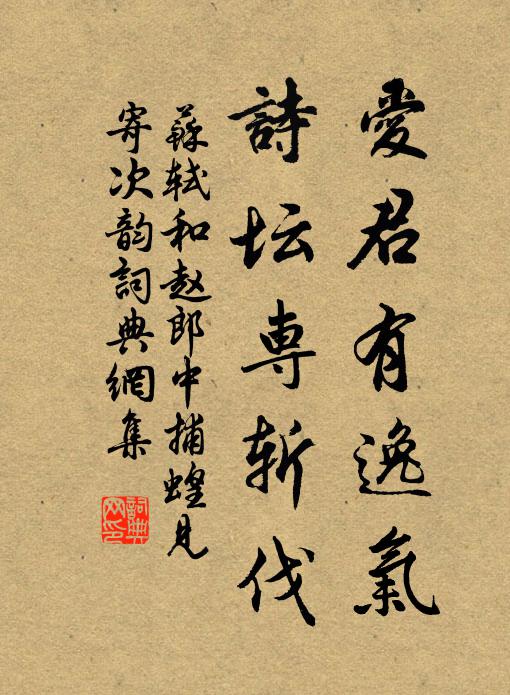 愛君有逸氣
詩坛専斬伐
蘇轼和赵郎中捕蝗見
寄次韵詞典網集
詞典
网印